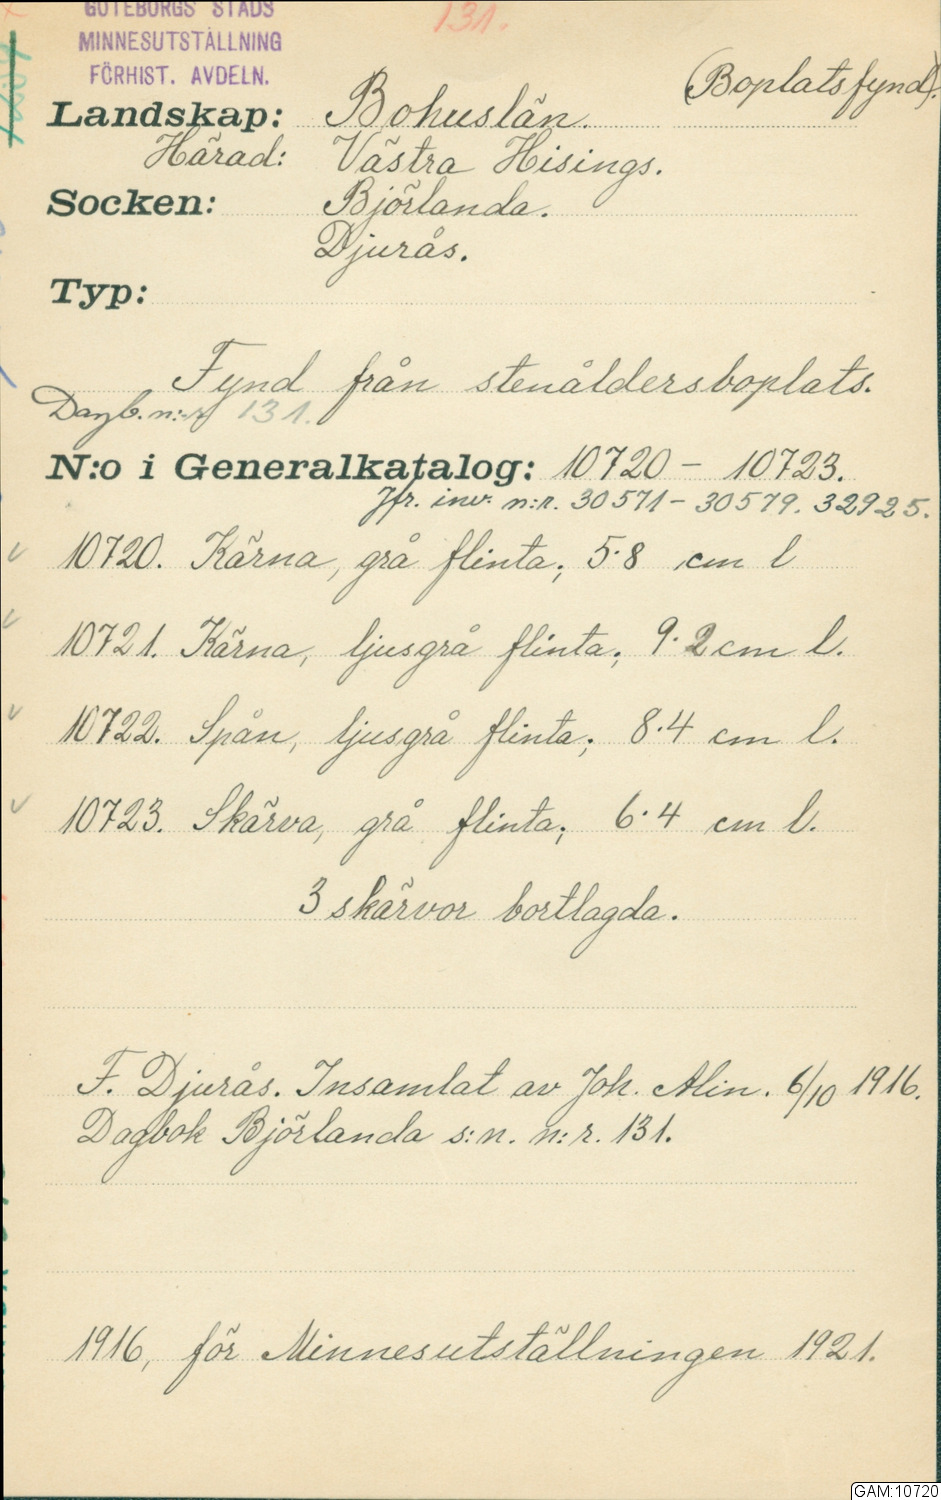 GÖTEBORGS STADS
MINNESUTSTÄLLNING
FÖRHIST. AVDELN.
131.
(Boplatsfynd).
Landskap: Bohuslän.
Härad: Västra Hisings.
Socken: Björlanda.
Djurås.
Typ:
Fynd från stenåldersboplats.
Dagb. n:r 131.
N:o i Generalkatalog: 10720 - 10723.
Jfr. inv. n:r. 30571 - 30579. 32925.
10720. Kärna, grå flinta; 5·8 cm l
10721. Kärna, ljusgrå flinta; 9·2 cm l.
10722. Spån, ljusgrå flinta; 8·4 cm l.
10723. Skärva, grå flinta; 6·4 cm l.
3 skärvor bortlagda.
F. Djurås. Insamlat av Joh. Alin. 6/10 1916.
Dagbok Björlanda s:n. n:r. 131.
1916, för Minnesutställningen 1921.
GAM:10720